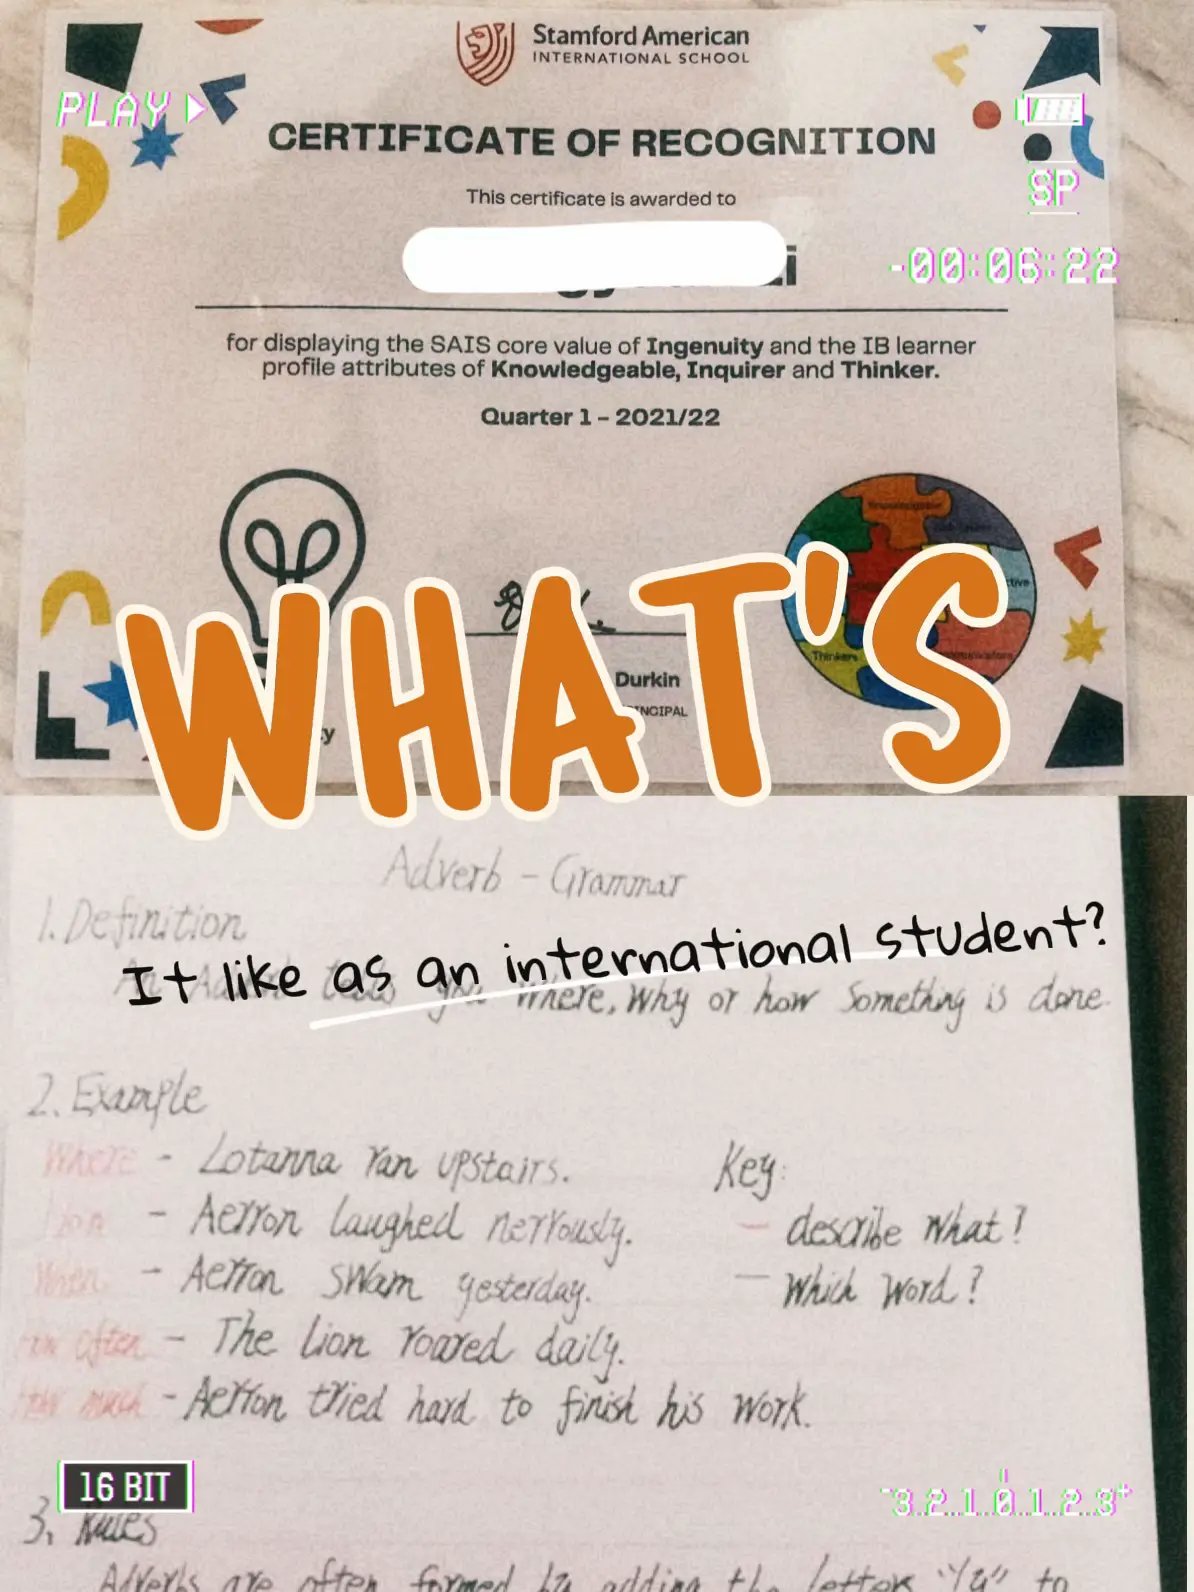 Stamford American
INTERNATIONAL SCHOOL
PLAY
CERTIFICATE OF RECOGNITION
SP
This certificate is awarded to
-00:06:22
for displaying the SAIS core value of Ingenuity and the IB learner
profile attributes of Knowledgeable, Inquirer and Thinker.
Quarter 1 – 2021/22
Thinkers
Durkin
WHAT'S
Adverb - Grammar
1. Definition
It like as an international student?
where, why or how something is done
2. Example
Where - Lotanna ran upstairs.
Key:
- Aerron laughed nervously.
- describe what?
When - Aerron swam yesterday.
- which word?
How often - The lion roared daily.
How much - Aerron tried hard to finish his work.
16 BIT
-3.2.1.0.1.2.3+
3. Rules
Adverbs are often formed by adding the letters "ly" to